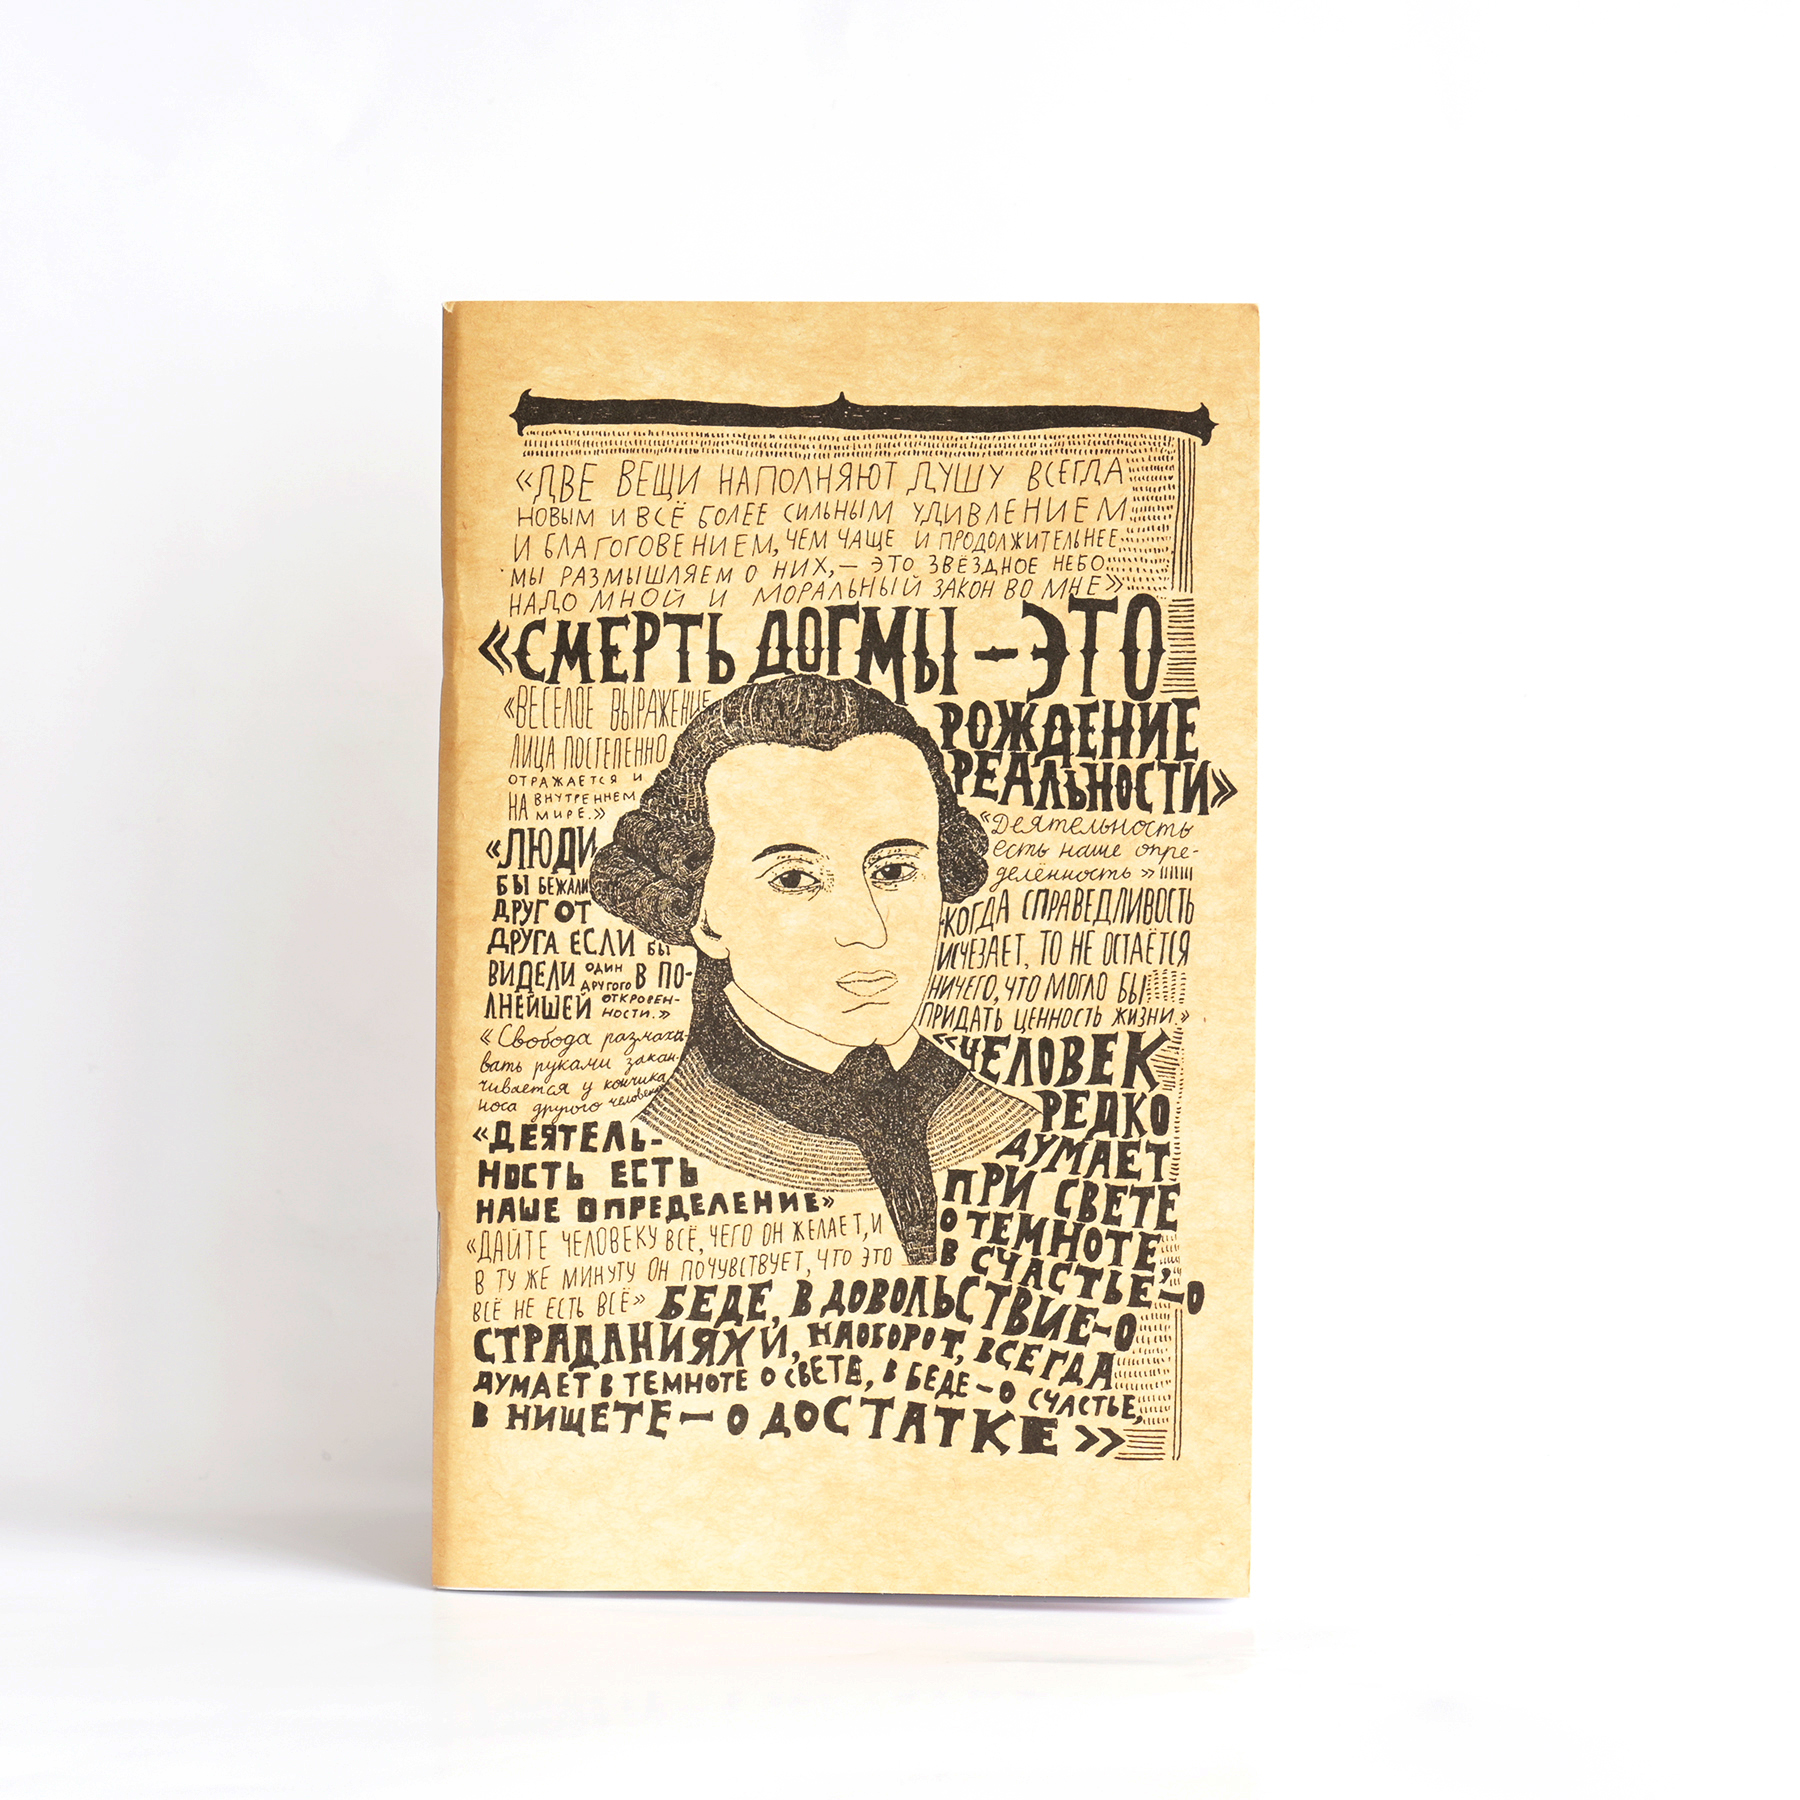 «ДВЕ ВЕЩИ НАПОЛНЯЮТ ДУШУ ВСЕГДА
НОВЫМ И ВСЁ БОЛЕЕ СИЛЬНЫМ УДИВЛЕНИЕМ
И БЛАГОГОВЕНИЕМ, ЧЕМ ЧАЩЕ И ПРОДОЛЖИТЕЛЬНЕЕ
МЫ РАЗМЫШЛЯЕМ О НИХ, – ЭТО ЗВЁЗДНОЕ НЕБО
НАДО МНОЙ И МОРАЛЬНЫЙ ЗАКОН ВО МНЕ»
«СМЕРТЬ ДОГМЫ – ЭТО
РОЖДЕНИЕ
РЕАЛЬНОСТИ»
«ВЕСЕЛОЕ ВЫРАЖЕНИЕ
ЛИЦА ПОСТЕПЕННО
ОТРАЖАЕТСЯ И
НА ВНУТРЕННЕМ
МИРЕ.»
«ЛЮДИ
БЫ БЕЖАЛИ
ДРУГ ОТ
ДРУГА ЕСЛИ БЫ
ВИДЕЛИ ОДИН ДРУГОГО В ПО-
ЛНЕЙШЕЙ ОТКРОВЕН-
НОСТИ.»
«Свобода размахи-
вать руками закан-
чивается у кончика
носа другого человека
«ДЕЯТЕЛЬ-
НОСТЬ ЕСТЬ
НАШЕ ОПРЕДЕЛЕНИЕ»
«ДАЙТЕ ЧЕЛОВЕКУ ВСЁ, ЧЕГО ОН ЖЕЛАЕТ, И
В ТУ ЖЕ МИНУТУ ОН ПОЧУВСТВУЕТ, ЧТО ЭТО
ВСЁ НЕ ЕСТЬ ВСЁ»
«Деятельность
есть наше опре-
делённость»
«КОГДА СПРАВЕДЛИВОСТЬ
ИСЧЕЗАЕТ, ТО НЕ ОСТАЁТСЯ
НИЧЕГО, ЧТО МОГЛО БЫ
ПРИДАТЬ ЦЕННОСТЬ ЖИЗНИ.»
«ЧЕЛОВЕК
РЕДКО
ДУМАЕТ
ПРИ СВЕТЕ
О ТЕМНОТЕ,
В СЧАСТЬЕ – О
БЕДЕ, В ДОВОЛЬСТВИЕ – О
СТРАДАНИЯХ И, НАОБОРОТ, ВСЕГДА
ДУМАЕТ В ТЕМНОТЕ О СВЕТЕ, В БЕДЕ – О СЧАСТЬЕ,
В НИЩЕТЕ – О ДОСТАТКЕ»